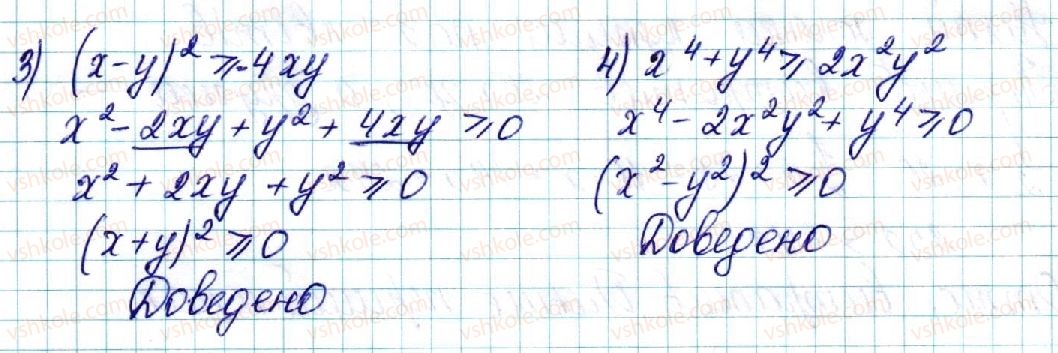 3) (x-y)² ≥ -4xy
x² - 2xy + y² + 4xy ≥ 0
x² + 2xy + y² ≥ 0
(x+y)² ≥ 0
Доведено
4) x⁴ + y⁴ ≥ 2x²y²
x⁴ - 2x²y² + y⁴ ≥ 0
(x² - y²)² ≥ 0
Доведено
vshkole.com